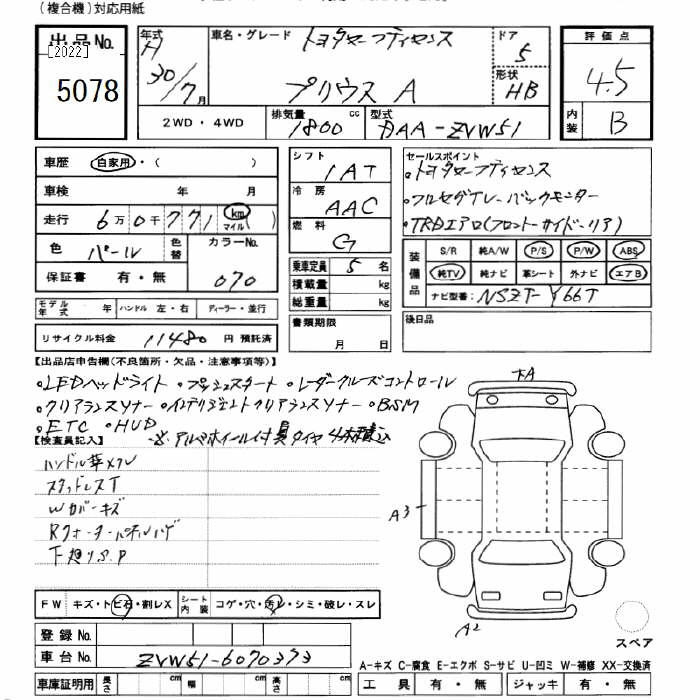 (複合機)対応用紙
出品No. [2022] 5078
年式 H 30/7月
車名・グレード トヨタセーフティセンス
プリウス A
ドア 5
形状 HB
評価点 4.5
内装 B
2WD・4WD
排気量 1800 cc
型式 DAA-ZVW51
車歴 自家用・( )
車検 年 月
走行 6万0千771 km マイル ( )
色 パール 色替 カラーNo. 070
保証書 有・無
シフト IAT
冷房 AAC
燃料 G
乗車定員 5 名
積載量 kg
総重量 kg
セールスポイント
・トヨタセーフティセンス
・フルセグTV・バックモニター
・TRDエアロ(フロント・サイド・リア)
装備品 S/R 純A/W P/S P/W ABS
純TV 純ナビ 革シート 外ナビ エアB
ナビ型番: NSZT-Y66T
モデル年式 年 ハンドル 左・右 ディーラー・並行
リサイクル料金 11480 円 預託済
書類期限 月 日
後日品
【出品店申告欄(不良箇所・欠品・注意事項等)】
・LEDヘッドライト ・プッシュスタート ・レーダークルーズコントロール
・クリアランスソナー ・インテリジェントクリアランスソナー ・BSM
・ETC ・HUD
【検査員記入】
アルミホイール付 夏タイヤ 4本積込
ハンドル革スレ
スタッドレスT
Wカバーキズ
Rクォーターパネルハゲ
下廻りS.P
下A
A3
A2
FW キズ・トビ石・割レX シート内装 コゲ・穴・汚レ・シミ・破レ・スレ
登録No.
車台No. ZVW51-6070373
スペア
A-キズ C-腐食 E-エクボ S-サビ U-凹ミ W-補修 XX-交換済
車庫証明用 長さ cm 幅 cm 高さ cm
工具 有・無 ジャッキ 有・無